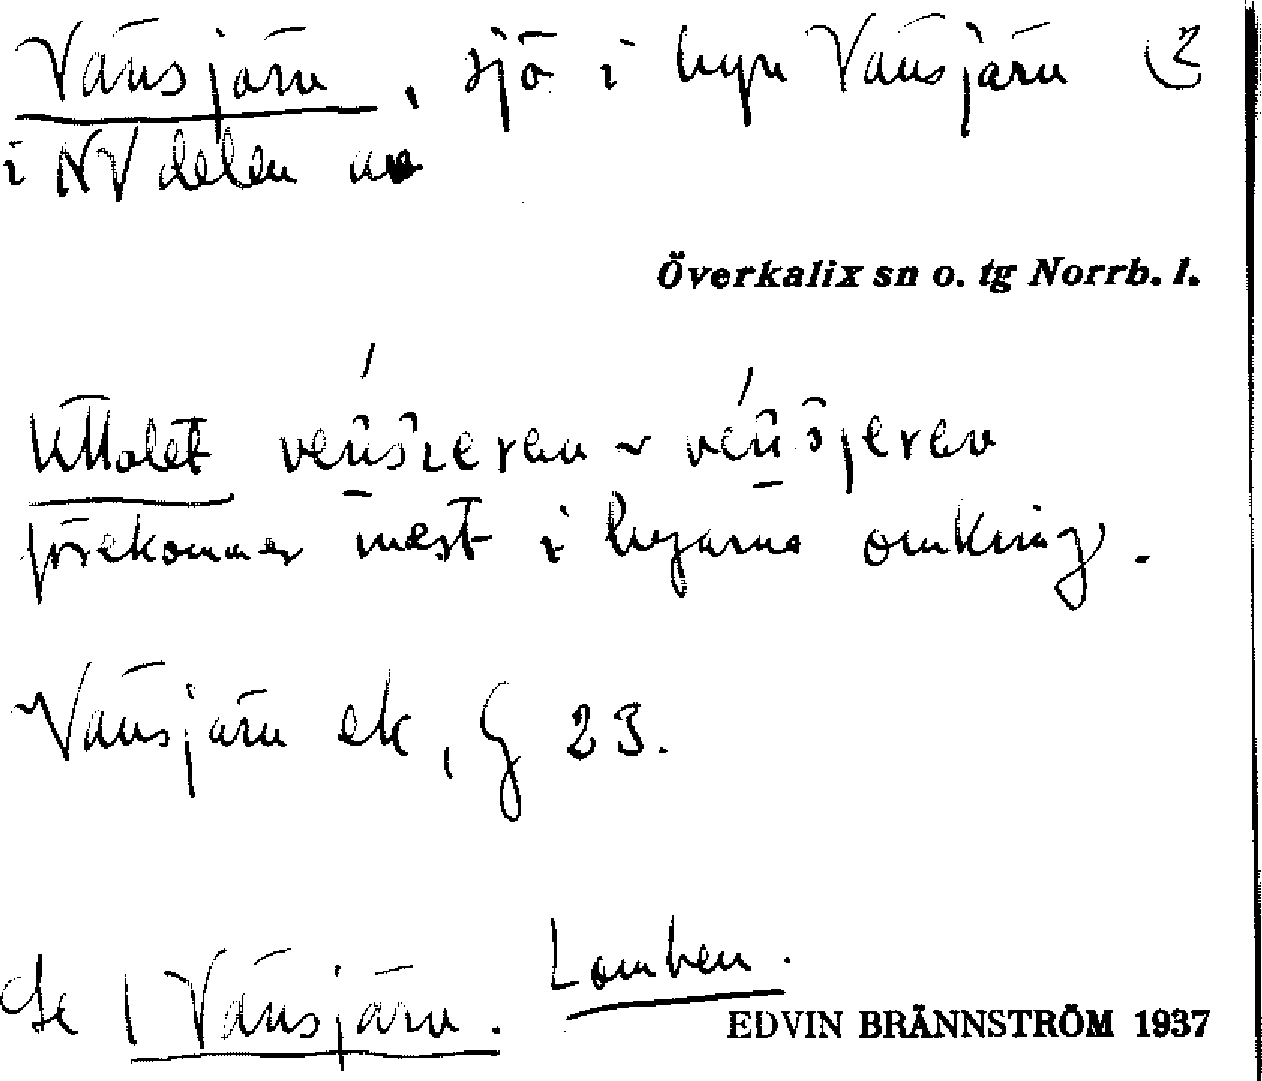 Vänsjärn, sjö i byn Vänsjärn (2
i NV delen av
Överkalix sn o. tg Norrb. l.
Uttalet ~
förekommer mest i byarna omkring.
Vänsjärn ek, § 23.
Se 1 Vänsjärn. Lomben.
EDVIN BRÄNNSTRÖM 1937